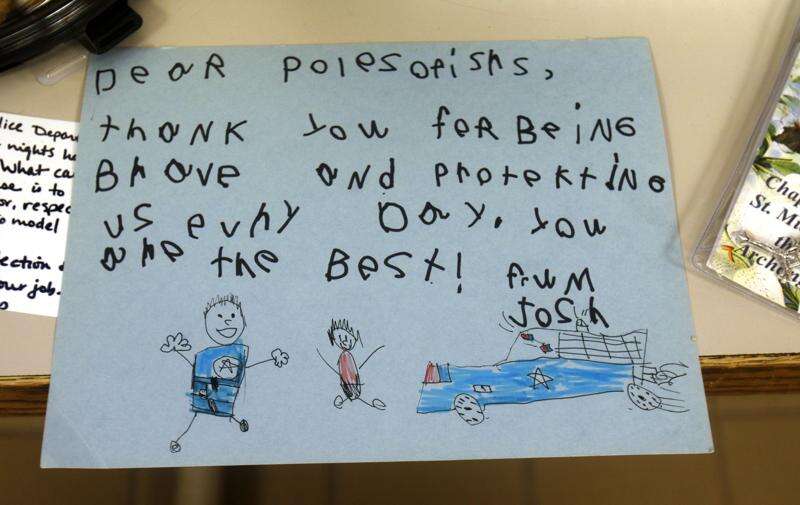 DeaR Polesofishs,
thaNK You foR BeiNG
Bhave aNd PhotektiNG
us evhy Day. You
ahe the BEST! fruM
JOSh
lice Depar
nights he
What ca
se is to
or, respec
to model
ection
our job.
Chap
St. Mi
th
Archan